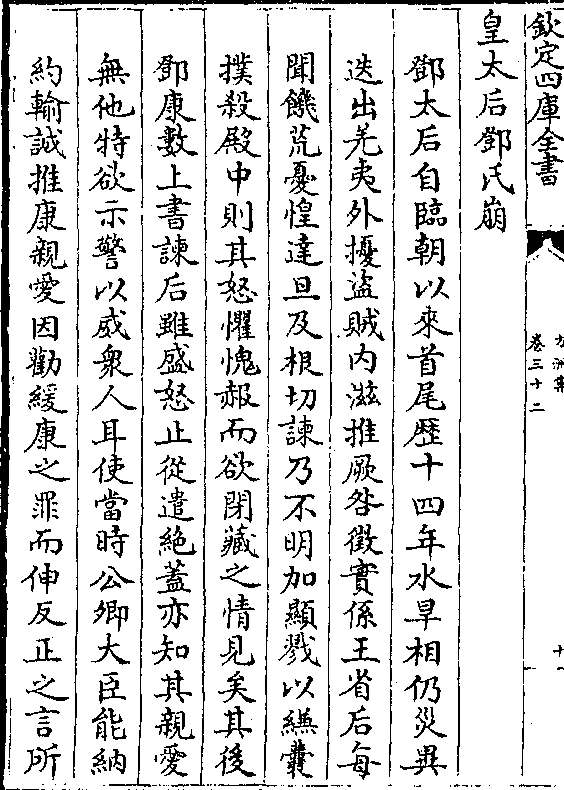 欽定四庫全書
卷三十二
皇太后鄧氏崩
鄧太后自臨朝以來首尾歴十四年水旱相仍災異
迭出羌夷外擾盜賊内滋推厥咎徵實係王省后每
聞饑荒憂惶達旦及根切諫乃不明加顯戮以縑囊
撲殺殿中則其怒懼愧赧而欲閉藏之情見矣其後
鄧康數上書諫后雖盛怒止從遣絶蓋亦知其親愛
無他特欲示警以威衆人耳使當時公卿大臣能納
約輸誠推康親愛因勸緩康之罪而伸反正之言所